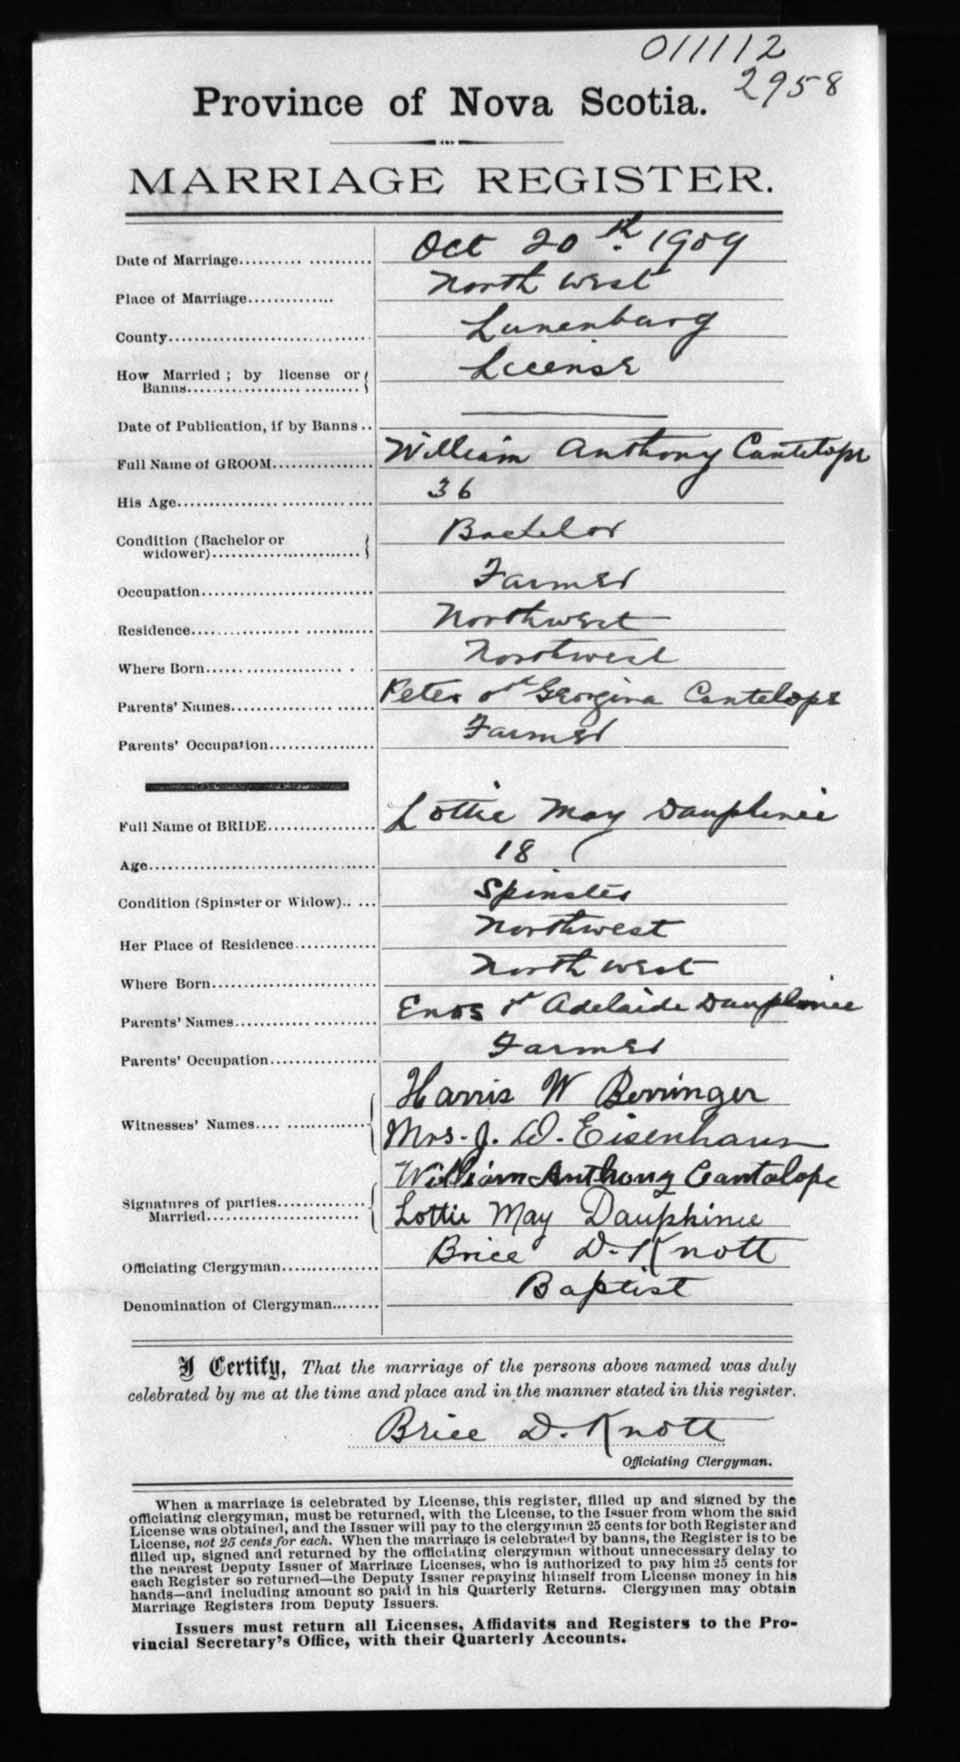 011112
2958
Province of Nova Scotia.
MARRIAGE REGISTER.
Date of Marriage.......... Oct 20th. 1909
Place of Marriage.............. North West
County.............................. Lunenburg
How Married ; by license or
Banns.............................. License
Date of Publication, if by Banns ..
Full Name of GROOM................ William Anthony Cantelope
His Age.............................. 36
Condition (Bachelor or
widower).......................... Bachelor
Occupation.......................... Farmer
Residence.............................. Northwest
Where Born............................ Northwest
Parents' Names...................... Peter & Georgina Cantelope
Parents' Occupation................ Farmer
Full Name of BRIDE................ Lottie May Dauphinee
Age.................................... 18
Condition (Spinster or Widow)..... Spinster
Her Place of Residence............ Northwest
Where Born.......................... North west
Parents' Names...................... Enos & Adelaide Dauphinee
Parents' Occupation................ Farmer
Harris W Berringer
Witnesses' Names.................. Mrs. J. W. Eisenhaur
William Anthony Cantalope
Signatures of parties..............
Married.............................. Lottie May Dauphinee
Officiating Clergyman.............. Brice D. Knott
Denomination of Clergyman........ Baptist
I Certify, That the marriage of the persons above named was duly
celebrated by me at the time and place and in the manner stated in this register.
Brice D. Knott
Officiating Clergyman.
When a marriage is celebrated by License, this register, filled up and signed by the
officiating clergyman, must be returned, with the License, to the Issuer from whom the said
License was obtained, and the Issuer will pay to the clergyman 25 cents for both Register and
License, not 25 cents for each. When the marriage is celebrated by banns, the Register is to be
filled up, signed and returned by the officiating clergyman without unnecessary delay to
the nearest Deputy Issuer of Marriage Licenses, who is authorized to pay him 25 cents for
each Register so returned—the Deputy Issuer repaying himself from License money in his
hands—and including amount so paid in his Quarterly Returns. Clergymen may obtain
Marriage Registers from Deputy Issuers.
Issuers must return all Licenses, Affidavits and Registers to the Pro-
vincial Secretary's Office, with their Quarterly Accounts.